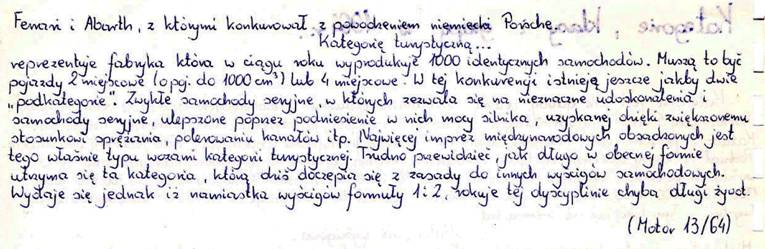 Ferrari i Abarth, z którymi konkurował z powodzeniem niemiecki Porsche.
Kategorię turystyczną...
reprezentuje fabryka która w ciągu roku wyprodukuje 1000 identycznych samochodów. Muszą to być
pojazdy 2 miejscowe (o poj. do 1000 cm³) lub 4 miejscowe. W tej konkurencji istnieją jeszcze jakby dwie
„podkategorie". Zwykłe samochody seryjne, w których zezwala się na nieznaczne udoskonalenia i
samochody seryjne, ulepszone poprzez podniesienie w nich mocy silnika, uzyskanej dzięki zwiększonemu
stosunkowi sprężania, polerowaniu kanałów itp. Najwięcej imprez międzynarodowych obsadzonych jest
tego właśnie typu wozami kategorii turystycznej. Trudno przewidzieć, jak długo w obecnej formie
utrzyma się ta kategoria, którą dziś doczepia się z zasady do innych wyścigów samochodowych.
Wydaje się jednak iż namiastka wyścigów formuły 1 i 2, rokuje tej dyscyplinie chyba długi żywot.
(Motor 13/64)